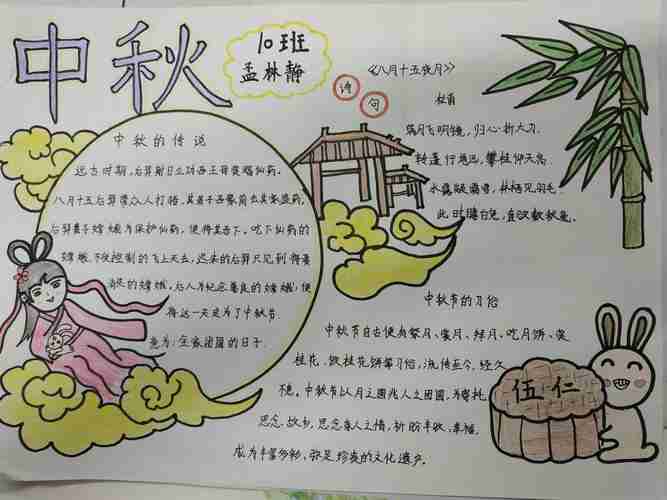 中秋
10班
孟林静
诗句
《八月十五夜月》
杜甫
满月飞明镜，归心折大刀.
转蓬行地远，攀桂仰天高.
水路疑霜雪，林栖见羽毛.
此时瞻白兔，直欲数秋毫.
中秋的传说
远古时期，后羿射日立功西王母奖赐仙药.
八月十五后羿带众人打猎，其弟子
后羿妻子嫦娥为保护仙药，便将其吞下。吃下仙药的
嫦娥不受控制的飞上天去，迟来的后羿只见到得要
消失的嫦娥。后人为纪念善良的嫦娥，便
将这一天定为了中秋节
意为：全家团圆的日子.
中秋节的习俗
中秋节自古便有祭月、赏月、拜月、吃月饼、赏
桂花、饮桂花饼等习俗，流传至今，经久
不息。中秋节以月之圆兆人之团圆，为寄托
思念故乡，思念亲人之情，祈盼丰收、幸福，
成为丰富多彩，弥足珍贵的文化遗产。
伍仁